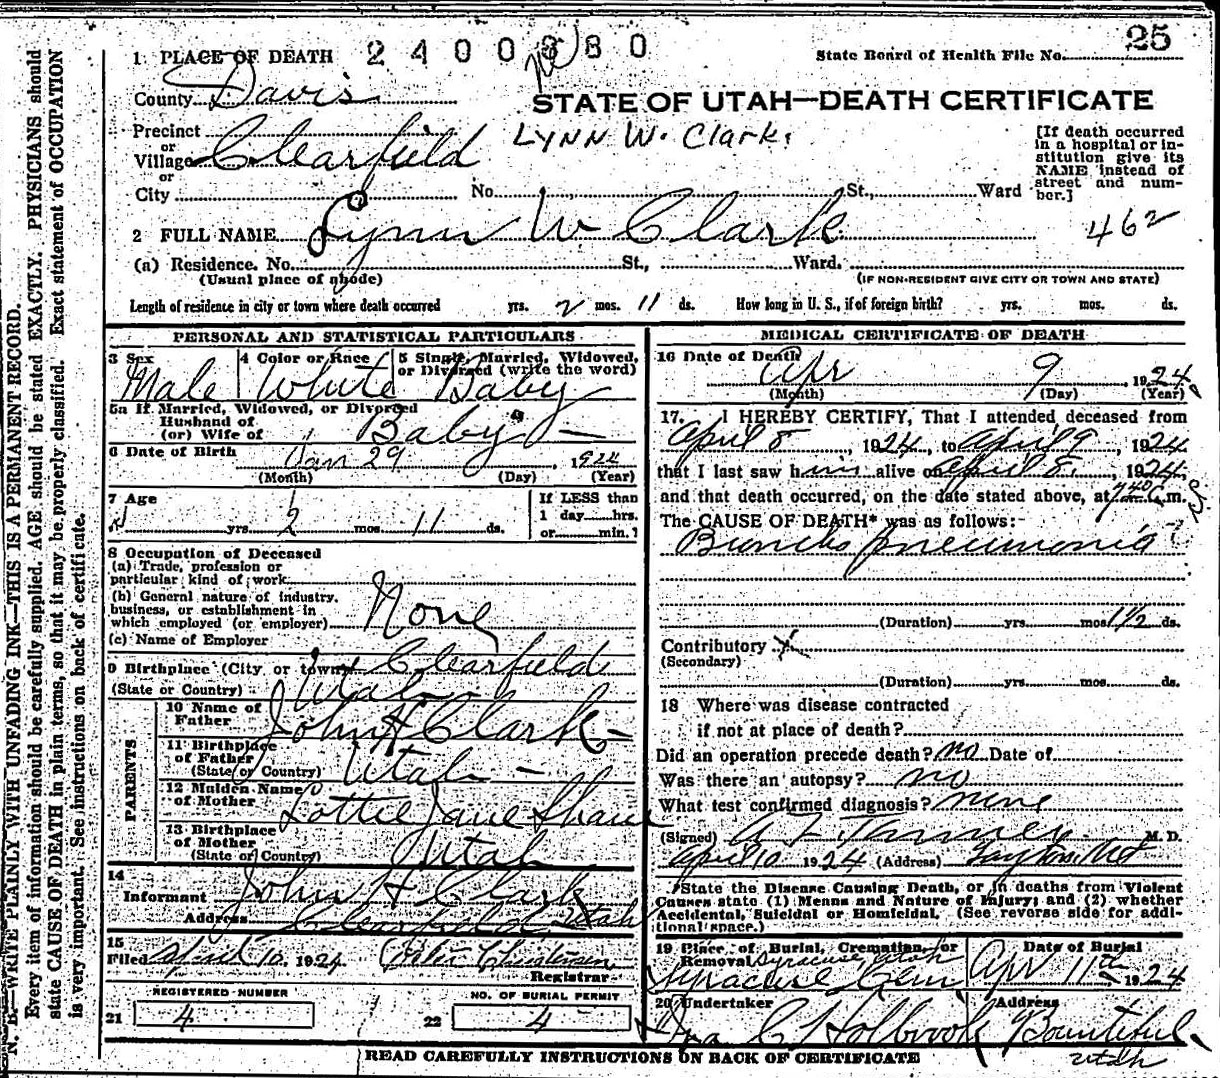 1 PLACE OF DEATH 2400380
State Board of Health File No. 25
County Davis
STATE OF UTAH—DEATH CERTIFICATE
Precinct
or
Village Clearfield
LYNN W. Clark.
or
City No. St., Ward
[If death occurred
in a hospital or in-
stitution give its
NAME instead of
street and num-
ber.]
2 FULL NAME Lynn W Clark
462
(a) Residence. No. St., Ward.
(Usual place of abode)
(IF NON-RESIDENT GIVE CITY OR TOWN AND STATE)
Length of residence in city or town where death occurred yrs. 2 mos. 11 ds. How long in U. S., if of foreign birth? yrs. mos. ds.
PERSONAL AND STATISTICAL PARTICULARS
3 Sex
Male
4 Color or Race
White
5 Single, Married, Widowed,
or Divorced (write the word)
Baby
5a If Married, Widowed, or Divorced
Husband of
(or) Wife of
Baby —
6 Date of Birth Jan 29, 1924
(Month) (Day) (Year)
7 Age
yrs. 2 mos. 11 ds.
If LESS than
1 day hrs.
or min.?
8 Occupation of Deceased
(a) Trade, profession or
particular kind of work
(b) General nature of industry,
business, or establishment in
which employed (or employer)
None
(c) Name of Employer
9 Birthplace (City or town) Clearfield
(State or Country) Utah
PARENTS
10 Name of
Father
John H Clark —
11 Birthplace
of Father
(State or Country) Utah —
12 Maiden Name
of Mother
Lottie Jane Shaw
13 Birthplace
of Mother
(State or Country) Utah
14
Informant John H Clark
Address Clearfield Utah
15
Filed April 10, 1924
Registrar
REGISTERED NUMBER
21 4
NO. OF BURIAL PERMIT
22 4
MEDICAL CERTIFICATE OF DEATH
16 Date of Death
Apr 9, 1924
(Month) (Day) (Year)
17. I HEREBY CERTIFY, That I attended deceased from
April 8, 1924, to April 9, 1924
that I last saw him alive on April 8, 1924,
and that death occurred, on the date stated above, at 7 40 a.m.
The CAUSE OF DEATH* was as follows:
Broncho pneumonia
(Duration) yrs. mos. 1 1/2 ds.
Contributory X
(Secondary)
(Duration) yrs. mos. ds.
18 Where was disease contracted
if not at place of death?
Did an operation precede death? no Date of
Was there an autopsy? no
What test confirmed diagnosis? none
(Signed) M. D.
April 10 1924 (Address) Layton Ut
*State the Disease Causing Death, or in deaths from Violent
Causes state (1) Means and Nature of Injury; and (2) whether
Accidental, Suicidal or Homicidal. (See reverse side for addi-
tional space.)
19 Place of Burial, Cremation, or
Removal Syracuse, Utah
Syracuse Cem.
Date of Burial
Apr 11th, 1924
20 Undertaker
Ira C Holbrook
Address
Bountiful,
Utah
READ CAREFULLY INSTRUCTIONS ON BACK OF CERTIFICATE
N. B.—WRITE PLAINLY WITH UNFADING INK—THIS IS A PERMANENT RECORD.
Every item of information should be carefully supplied. AGE should be stated EXACTLY. PHYSICIANS should
state CAUSE OF DEATH in plain terms, so that it may be properly classified. Exact statement of OCCUPATION
is very important. See instructions on back of certificate.